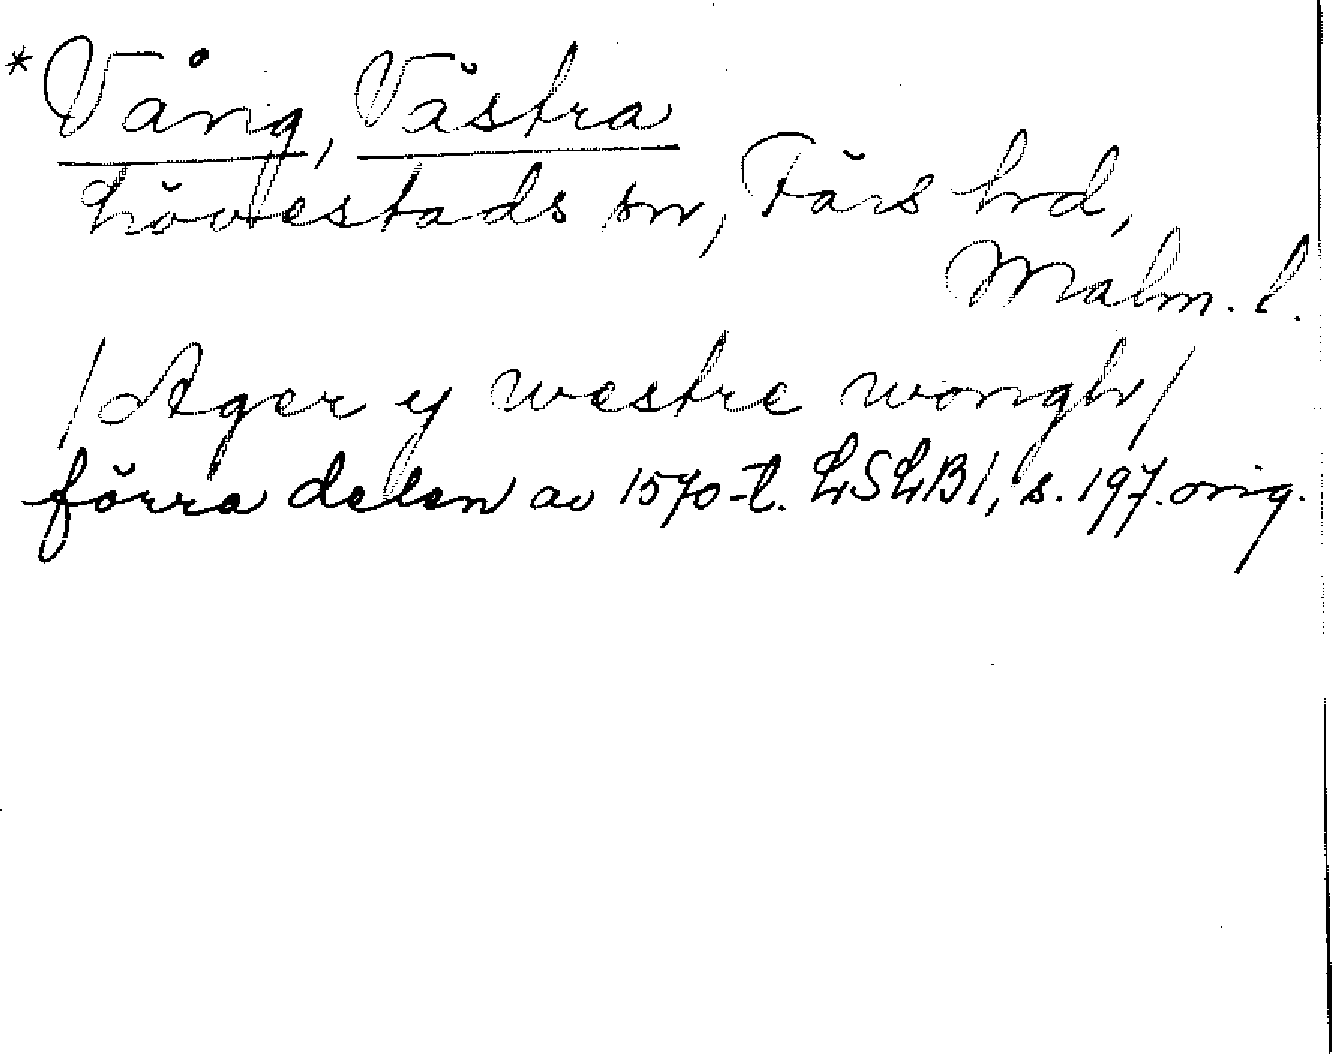 *Vång, Västra
Lövestads sn, Färs hrd,
Malm. l.
/Ager y westre wongh/
förra delen av 1570-t. LSLB1, s. 197. orig.